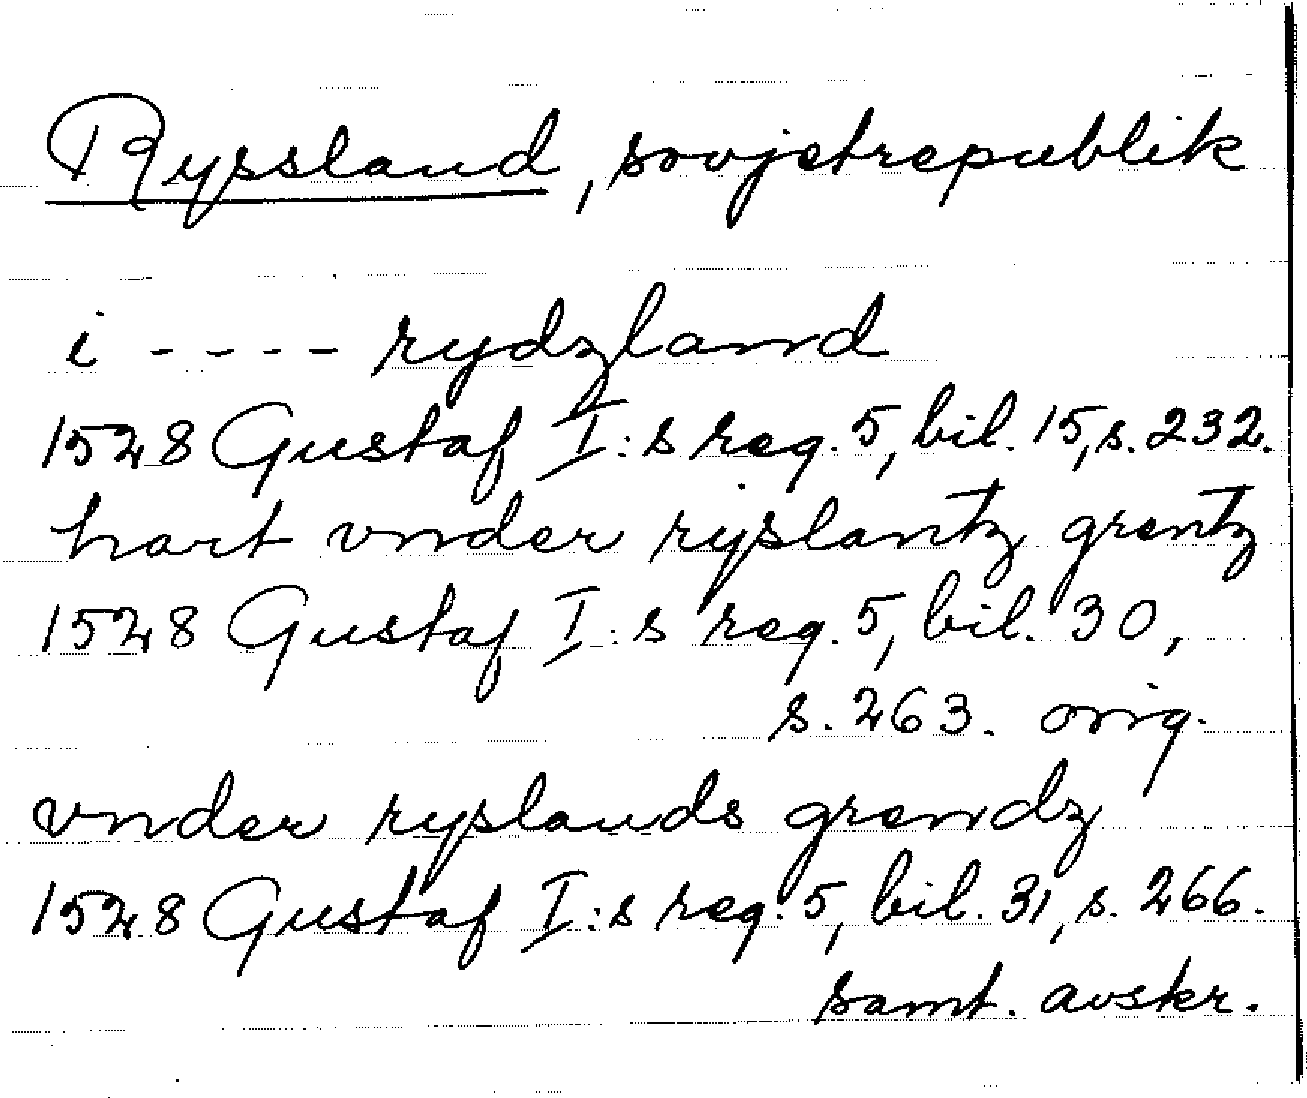 Ryssland, sovjetrepublik
i ---- rydzland
1528 Gustaf I:s reg. 5, bil. 15, s. 232.
hart vnder rÿslantz grentz
1528 Gustaf I:s reg. 5, bil. 30,
s. 263. orig.
vnder ryslands grendz
1528 Gustaf I:s reg. 5, bil. 31, s. 266.
samt. avskr.